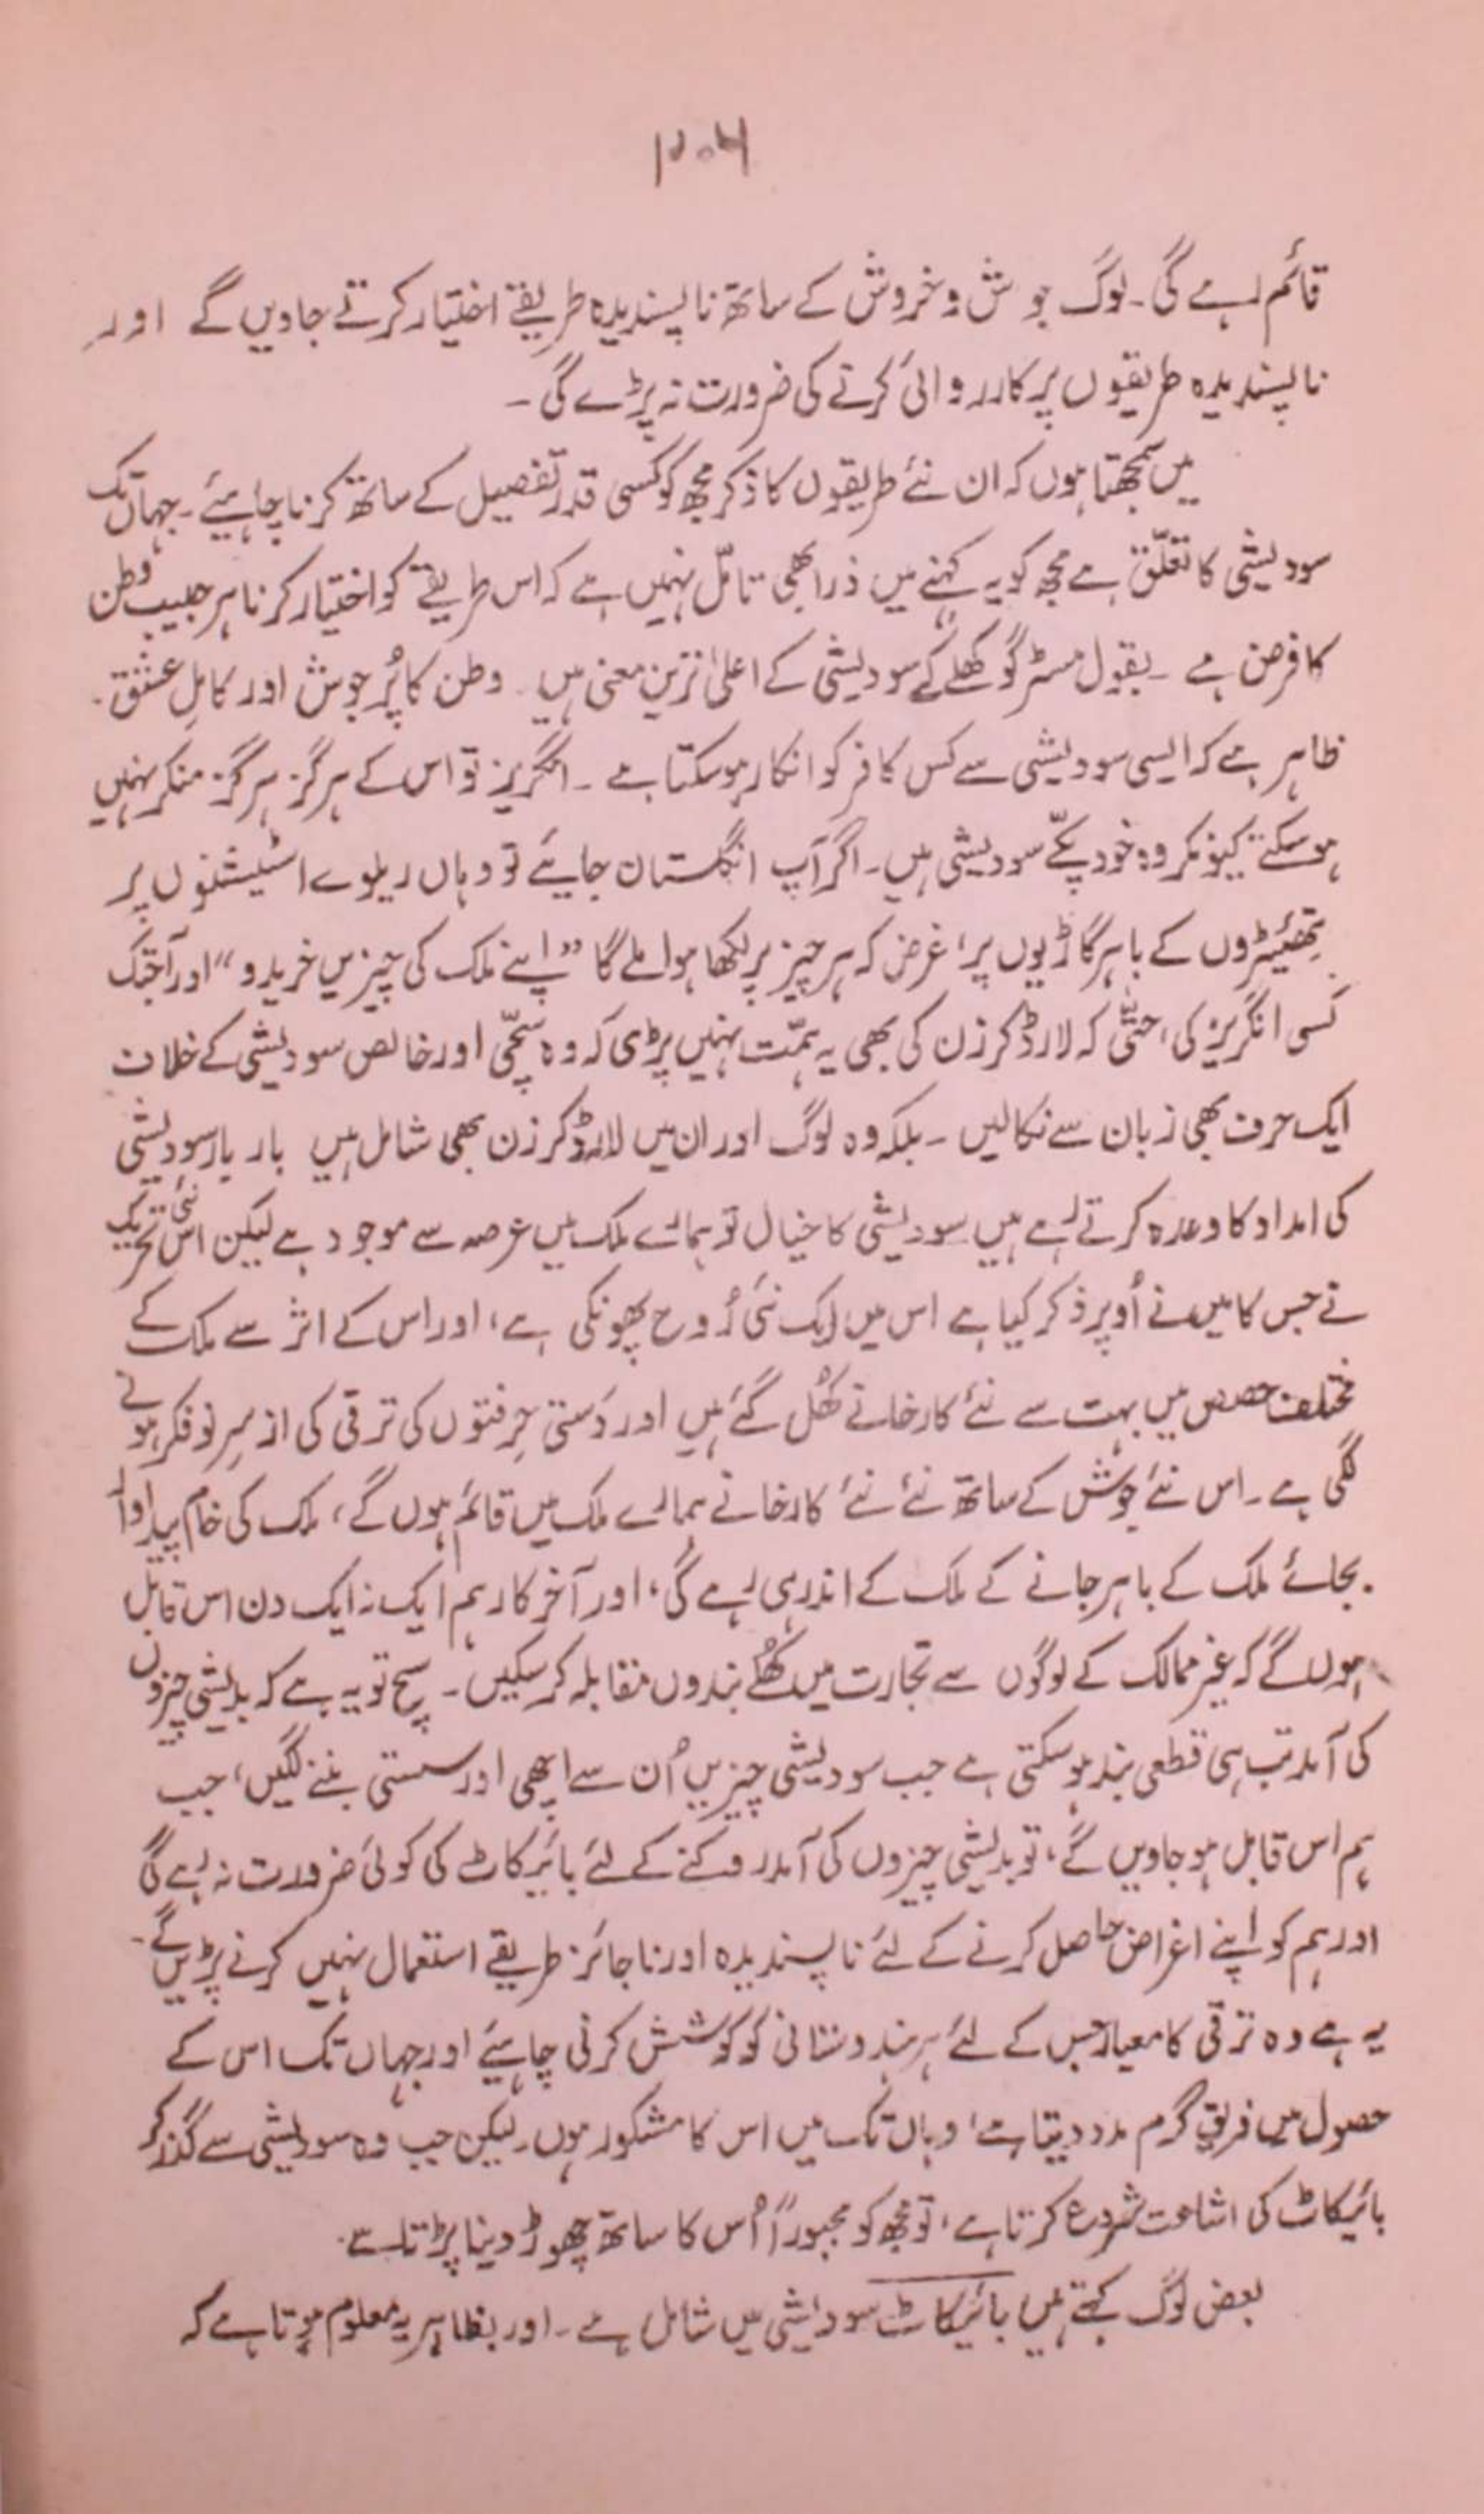 ۲۰۶
قائم رہے گی۔ لوگ جوش و خروش کے ساتھ ناپسندیدہ طریقے اختیار کرتے جاویں گے اور
ناپسندیدہ طریقوں پر کارروائی کرتے کی ضرورت نہ پڑے گی۔
میں سمجھتا ہوں کہ ان نئے طریقوں کا ذکر مجھ کو کسی قدر تفصیل کے ساتھ کرنا چاہیئے۔ جہاں تک
سودیشی کا تعلّق ہے مجھ کو یہ کہنے میں ذرا بھی تامّل نہیں ہے کہ اس طریقے کو اختیار کرنا ہر حبیب وطن
کا فرض ہے ۔ بقول مسٹر گوکھلے کے سودیشی کے اعلیٰ ترین معنی ہیں۔ وطن کا پُرجوش اور کاملِ عشق۔
ظاہر ہے کہ ایسی سودیشی سے کس کافر کو انکار ہو سکتا ہے ۔ انگریز تو اس کے ہرگز ہرگز منکر نہیں
ہو سکتے کیونکہ وہ خود پکّے سودیشی ہیں۔ اگر آپ انگلستان جایئے تو وہاں ریلوے اسٹیشنوں پر
تھئیٹروں کے باہر گاڑیوں پر، غرض کہ ہر چیز پر لکھا ہوا ملے گا ”اپنے ملک کی چیزیں خریدو“ اور آجتک
کسی انگریز کی، حتّیٰ کہ لارڈ کرزن کی بھی یہ ہمّت نہیں پڑی کہ وہ سچّی اور خالص سودیشی کے خلاف
ایک حرف بھی زبان سے نکالیں ۔ بلکہ وہ لوگ اور ان میں لارڈ کرزن بھی شامل ہیں بار بار سودیشی
کی امداد کا وعدہ کرتے رہے ہیں سودیشی کا خیال تو ہمارے ملک میں عرصہ سے موجود ہے لیکن اس نئی تحریک
نے جس کا میں نے اُوپر ذکر کیا ہے اس میں ایک نئی رُوح پھونکی ہے، اور اس کے اثر سے ملک کے
مختلف حصص میں بہت سے نئے کارخانے کھُل گئے ہیں اور دَستی حِرفتوں کی ترقی کی از سرِ نو فکر ہونے
لگی ہے۔ اس نئے جوش کے ساتھ نئے نئے کارخانے ہمارے ملک میں قائم ہوں گے، ملک کی خام پیداوار
بجائے ملک کے باہر جانے کے ملک کے اندر ہی رہے گی، اور آخر کار ہم ایک نہ ایک دن اس قابل
ہوں گے کہ غیر ممالک کے لوگوں سے تجارت میں کھُلے بندوں مقابلہ کر سکیں۔ سچ تو یہ ہے کہ بدیشی چیزوں
کی آمد تب ہی قطعی بند ہو سکتی ہے جب سودیشی چیزیں اُن سے اچھی اور سستی بننے لگیں، جب
ہم اس قابل ہو جاویں گے، تو بدیشی چیزوں کی آمد روکنے کے لئے بائیکاٹ کی کوئی ضرورت نہ رہے گی
اور ہم کو اپنے اغراض حاصل کرنے کے لئے ناپسندیدہ اور ناجائز طریقے استعمال نہیں کرنے پڑیں گے۔
یہ ہے وہ ترقی کا معیار جس کے لئے ہر ہندوستانی کو کوشش کرنی چاہیئے اور جہاں تک اس کے
حصول میں فریق گرم مدد دیتا ہے، وہاں تک میں اس کا مشکور ہوں۔ لیکن جب وہ سودیشی سے گذر کر
بائیکاٹ کی اشاعت شروع کرتا ہے، تو مجھ کو مجبوراً اُس کا ساتھ چھوڑ دینا پڑتا ہے۔
بعض لوگ کہتے ہیں بائیکاٹ سودیشی میں شامل ہے۔ اور بظاہر یہ معلوم ہوتا ہے کہ